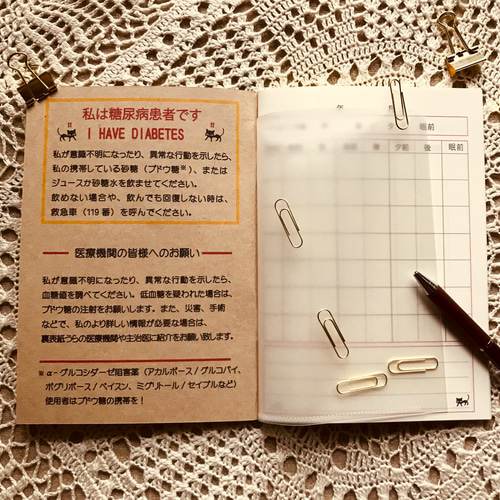 私は糖尿病患者です
I HAVE DIABETES
私が意識不明になったり、異常な行動を示したら、
私の携帯している砂糖（ブドウ糖※）、または
ジュースか砂糖水を飲ませてください。
飲めない場合や、飲んでも回復しない時は、
救急車（119番）を呼んでください。
医療機関の皆様へのお願い
私が意識不明になったり、異常な行動を示したら、
血糖値を調べてください。低血糖を疑われた場合は、
ブドウ糖の注射をお願いします。また、災害、手術
などで、私のより詳しい情報が必要な場合は、
裏表紙うらの医療機関や主治医に紹介をお願い致します。
※α-グルコシダーゼ阻害薬（アカルボース/グルコバイ、
ボグリボース/ベイスン、ミグリトール/セイブルなど）
使用者はブドウ糖の携帯を！
年
夕 眠前
夕前 後 眠前